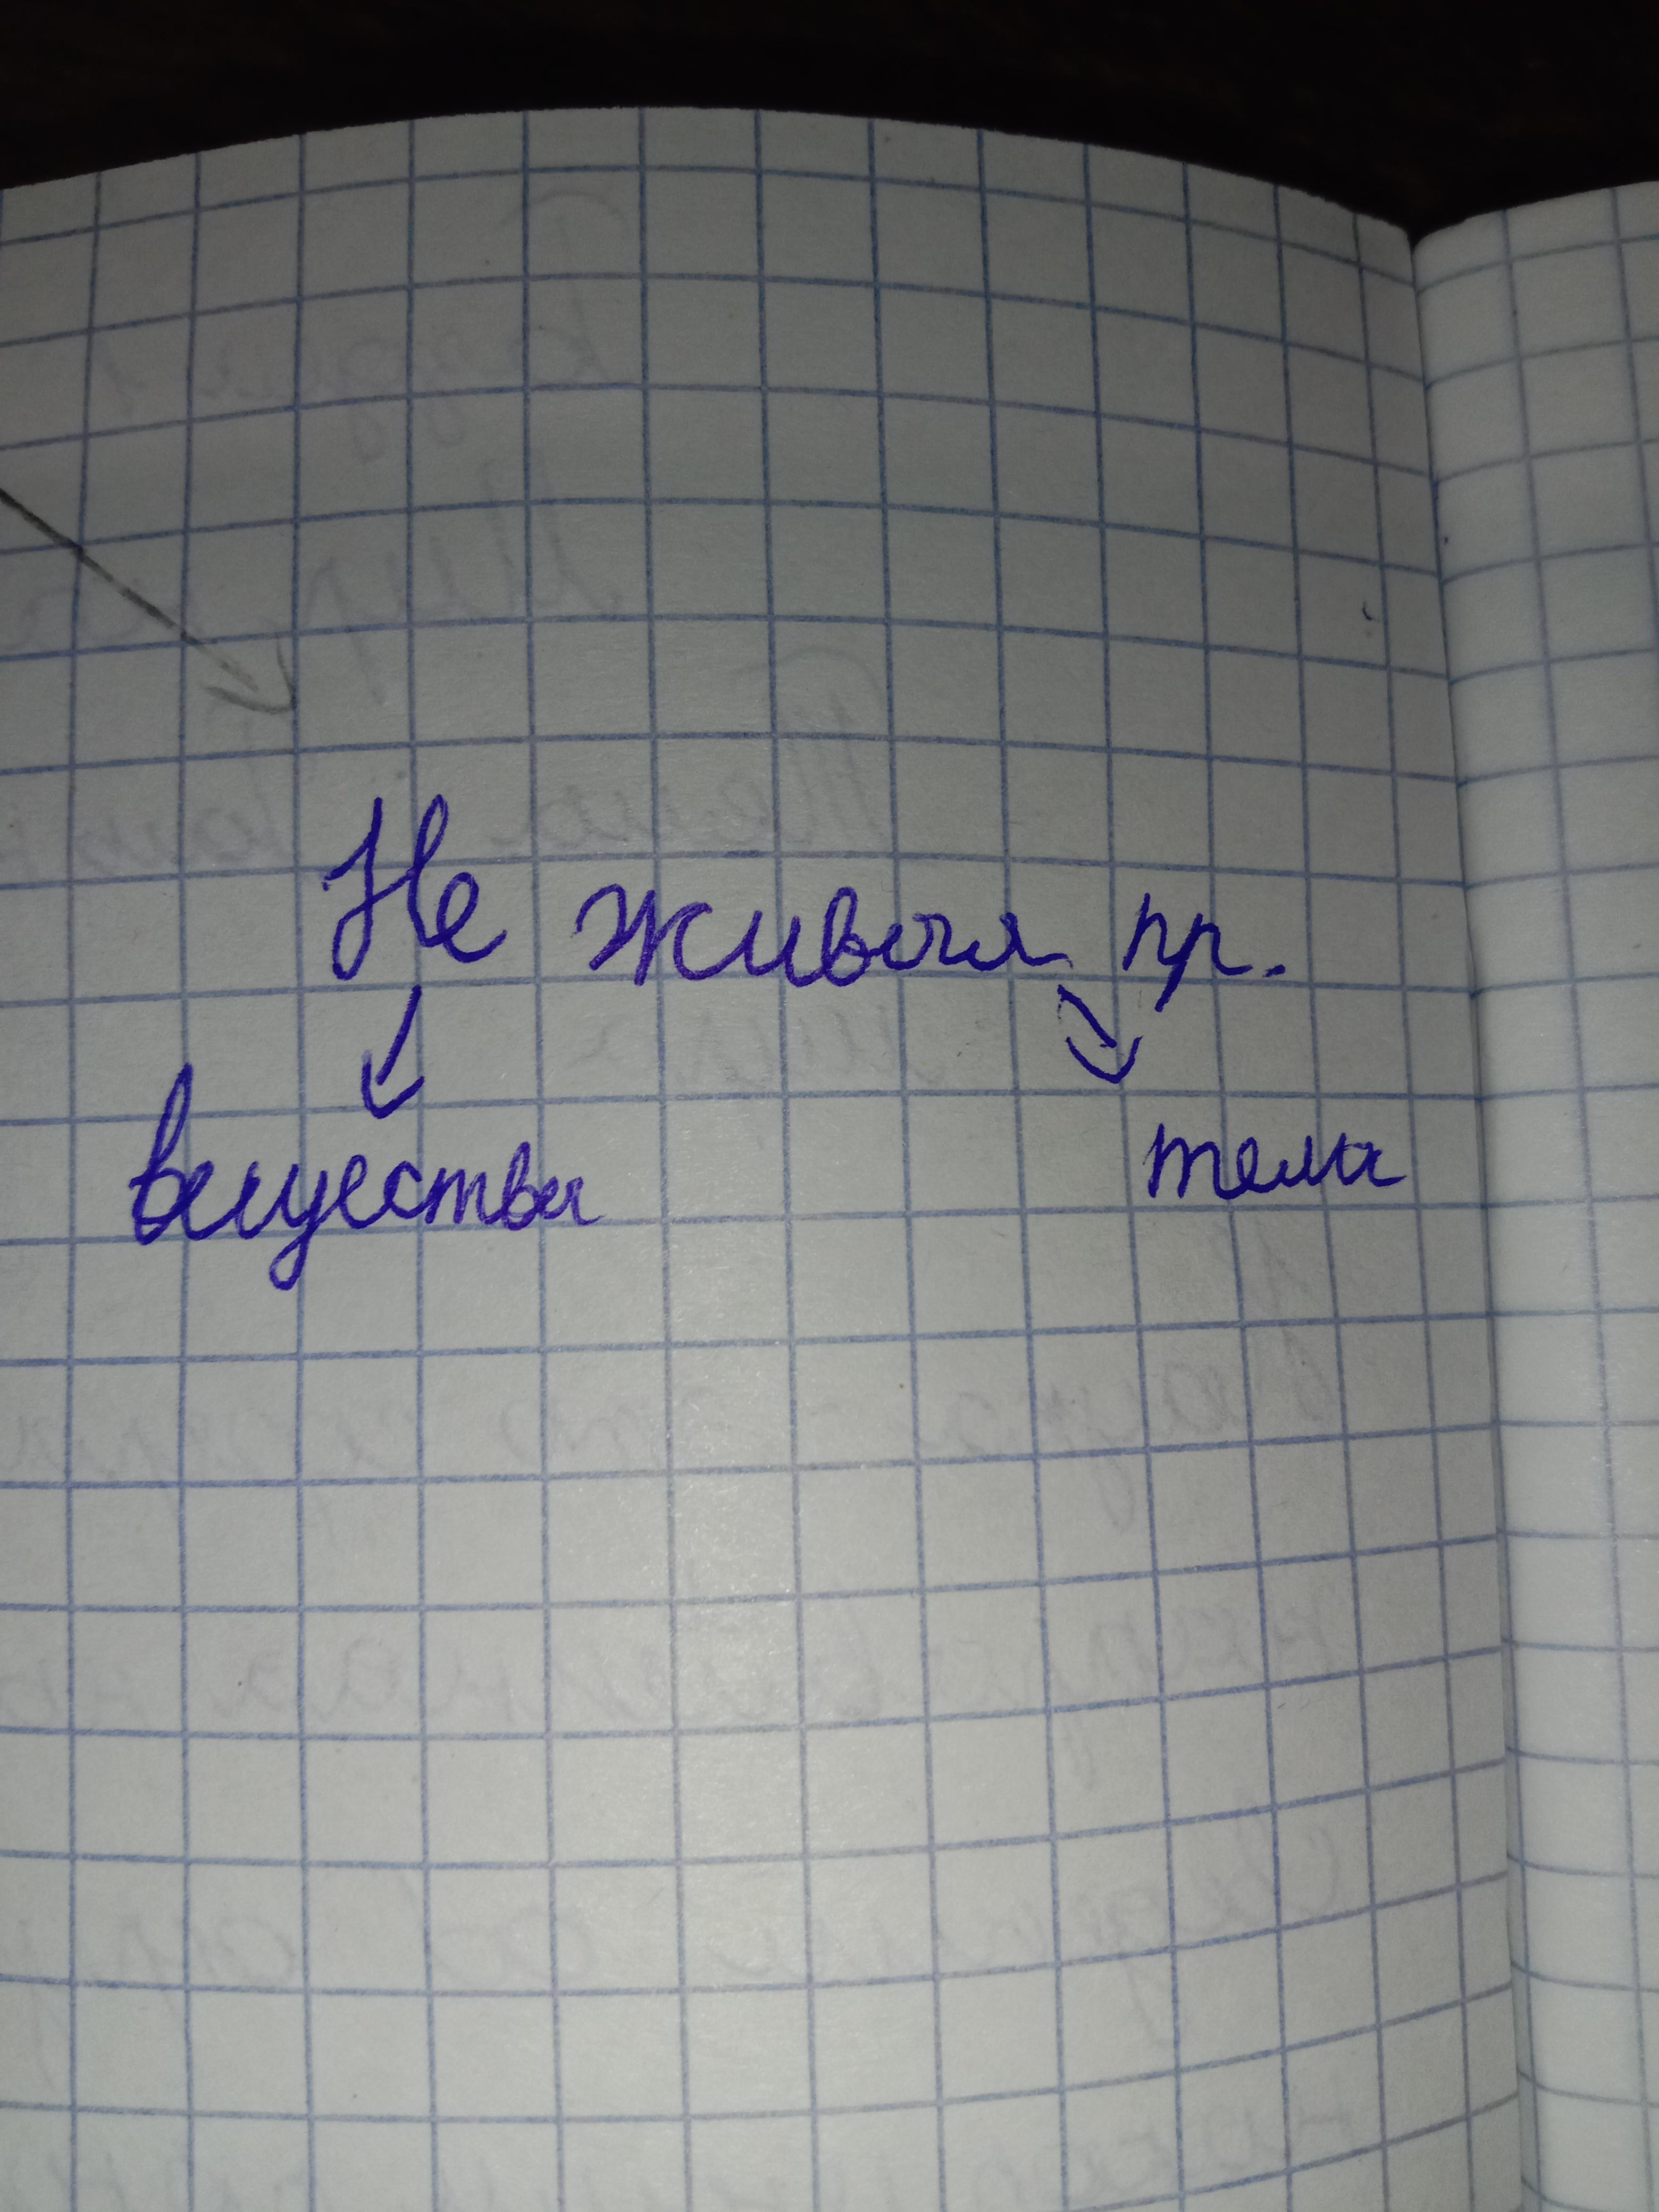 Не живая пр.
вещества
тела